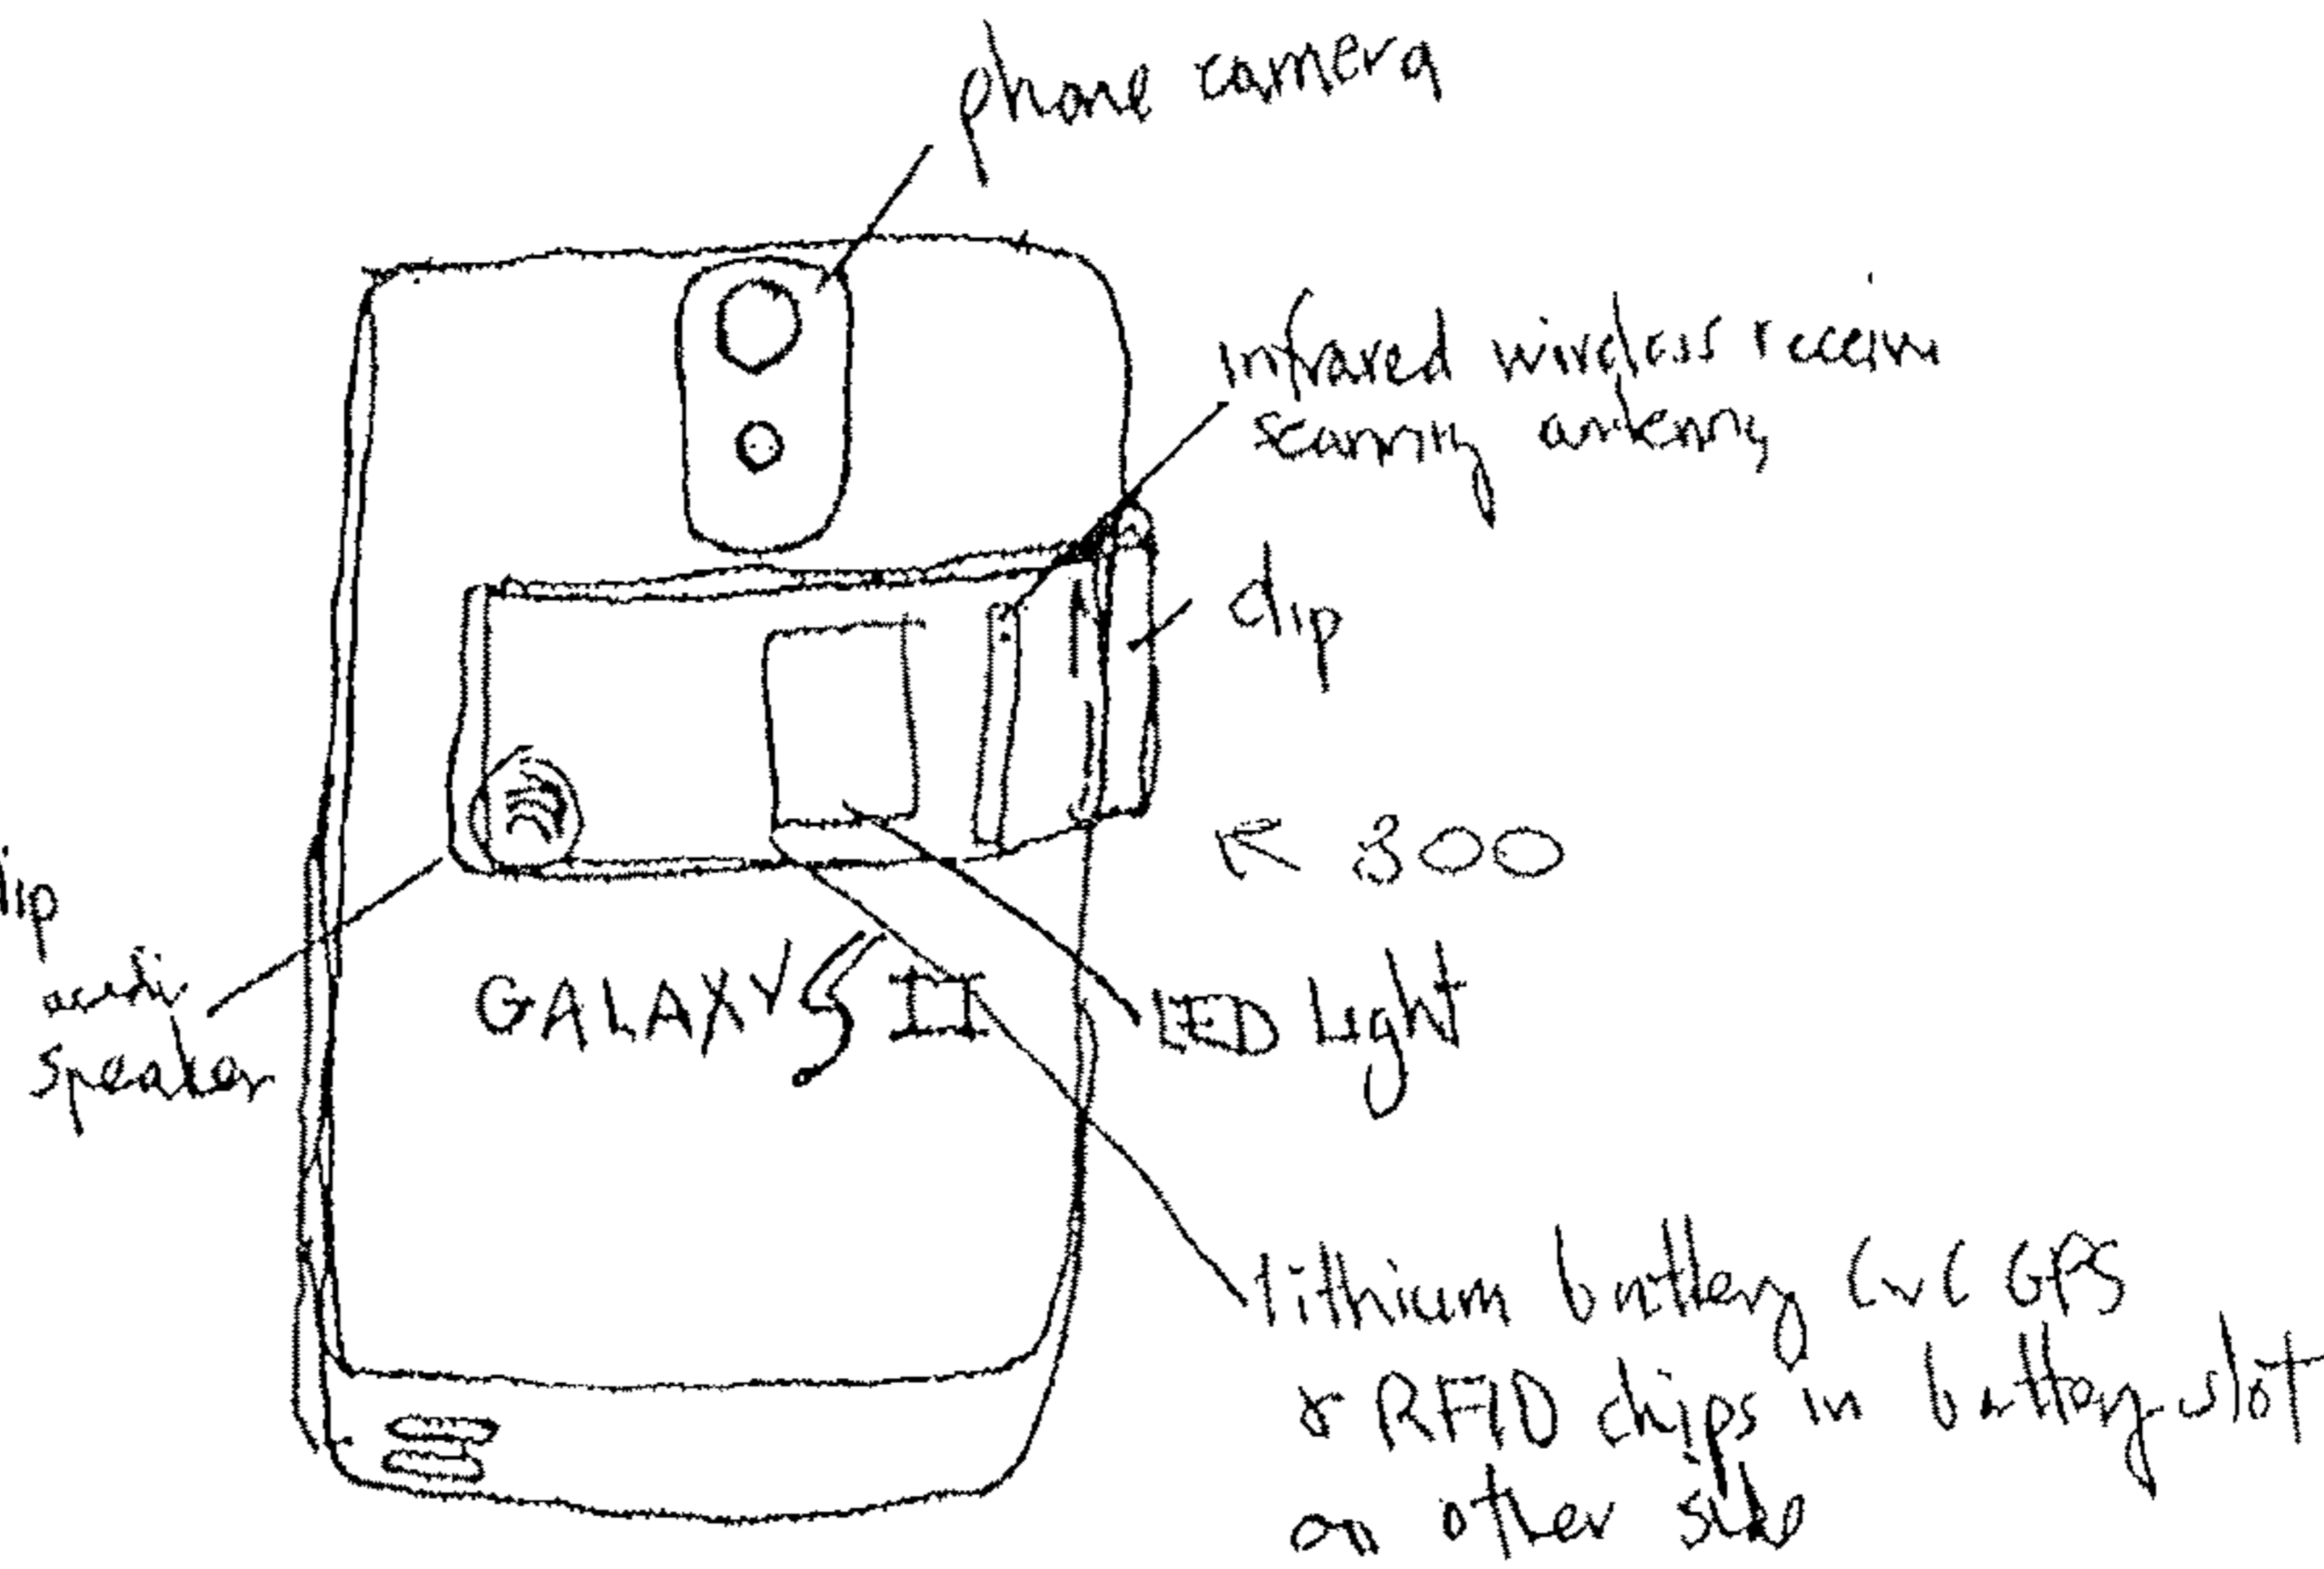 phone camera
infrared wireless
scanning antenna
clip
300
lip
speaker
GALAXY S II
LED Light
lithium battery GPS
& RFID chips in battery slot
on other side